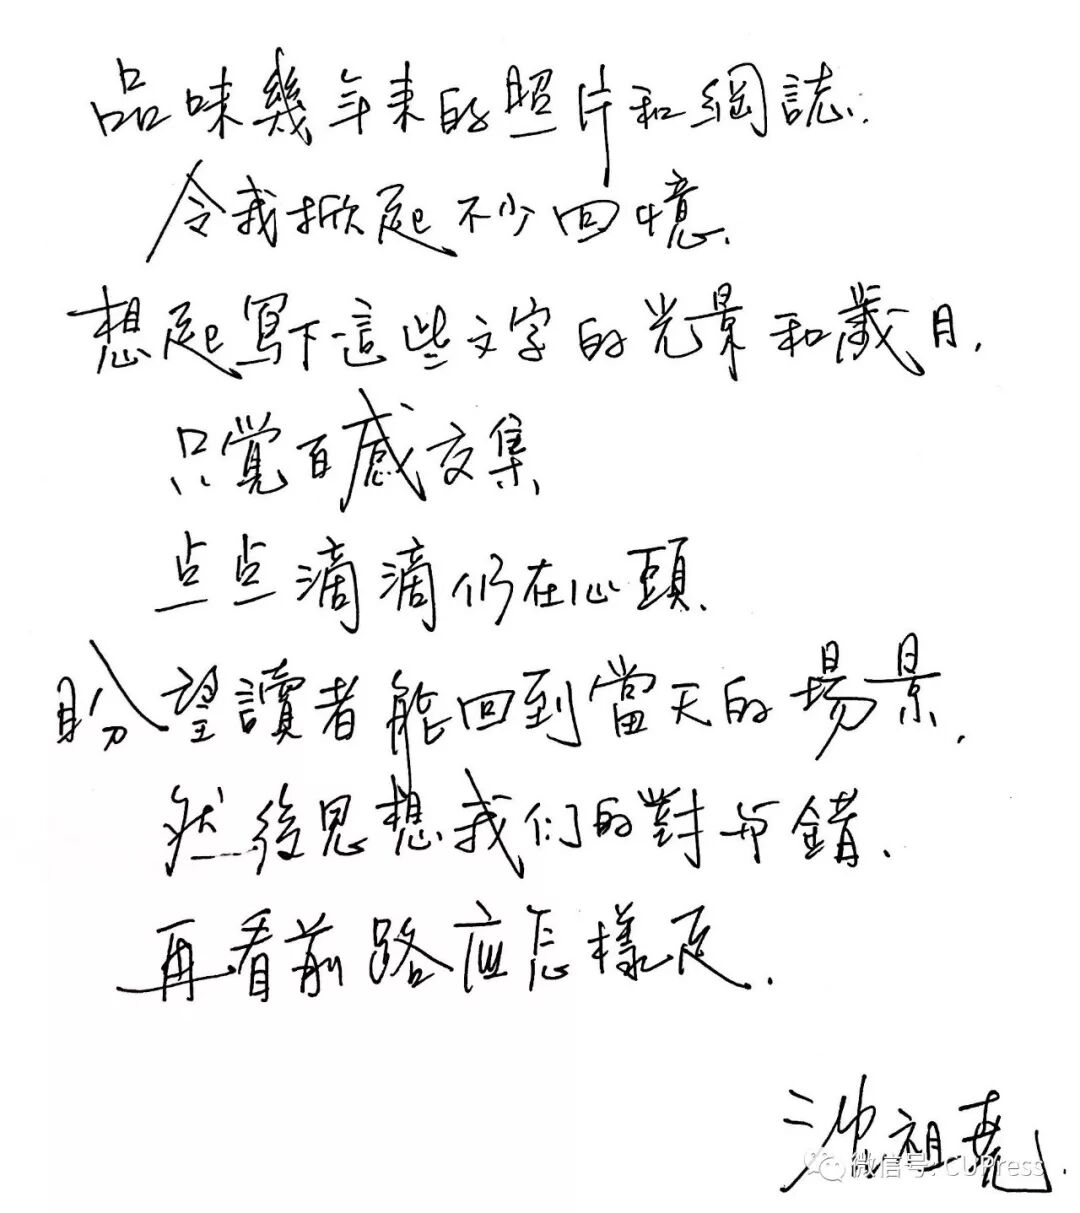 品味幾年來的照片和網誌.
令我掀起不少回憶.
想起寫下這些文字的光景和歲月.
只覺百感交集
点点滴滴仍在心頭.
盼望讀者能回到當天的場景.
然後思想我们的對与錯.
再看前路应怎樣走.
沈祖堯.
微信号: CUPress